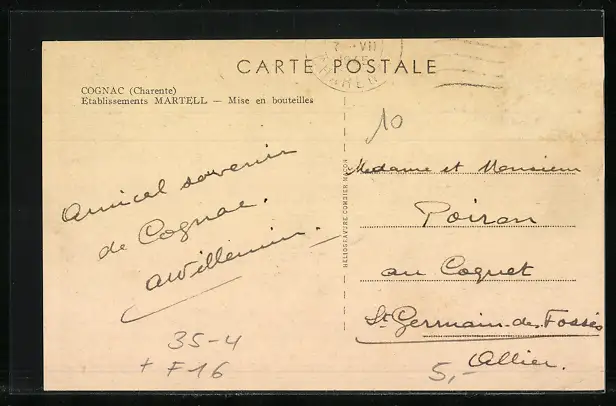 CARTE POSTALE
COGNAC (Charente)
Etablissements MARTELL — Mise en bouteilles
Amical souvenir
de Cognac.
AWillemin.
35-4
+ F16
HELIOGRAVURE COMBIER MACON
10
Madame et Monsieur
Poiron
au Coquet
St Germain-des-Fossés
Allier.
5,-